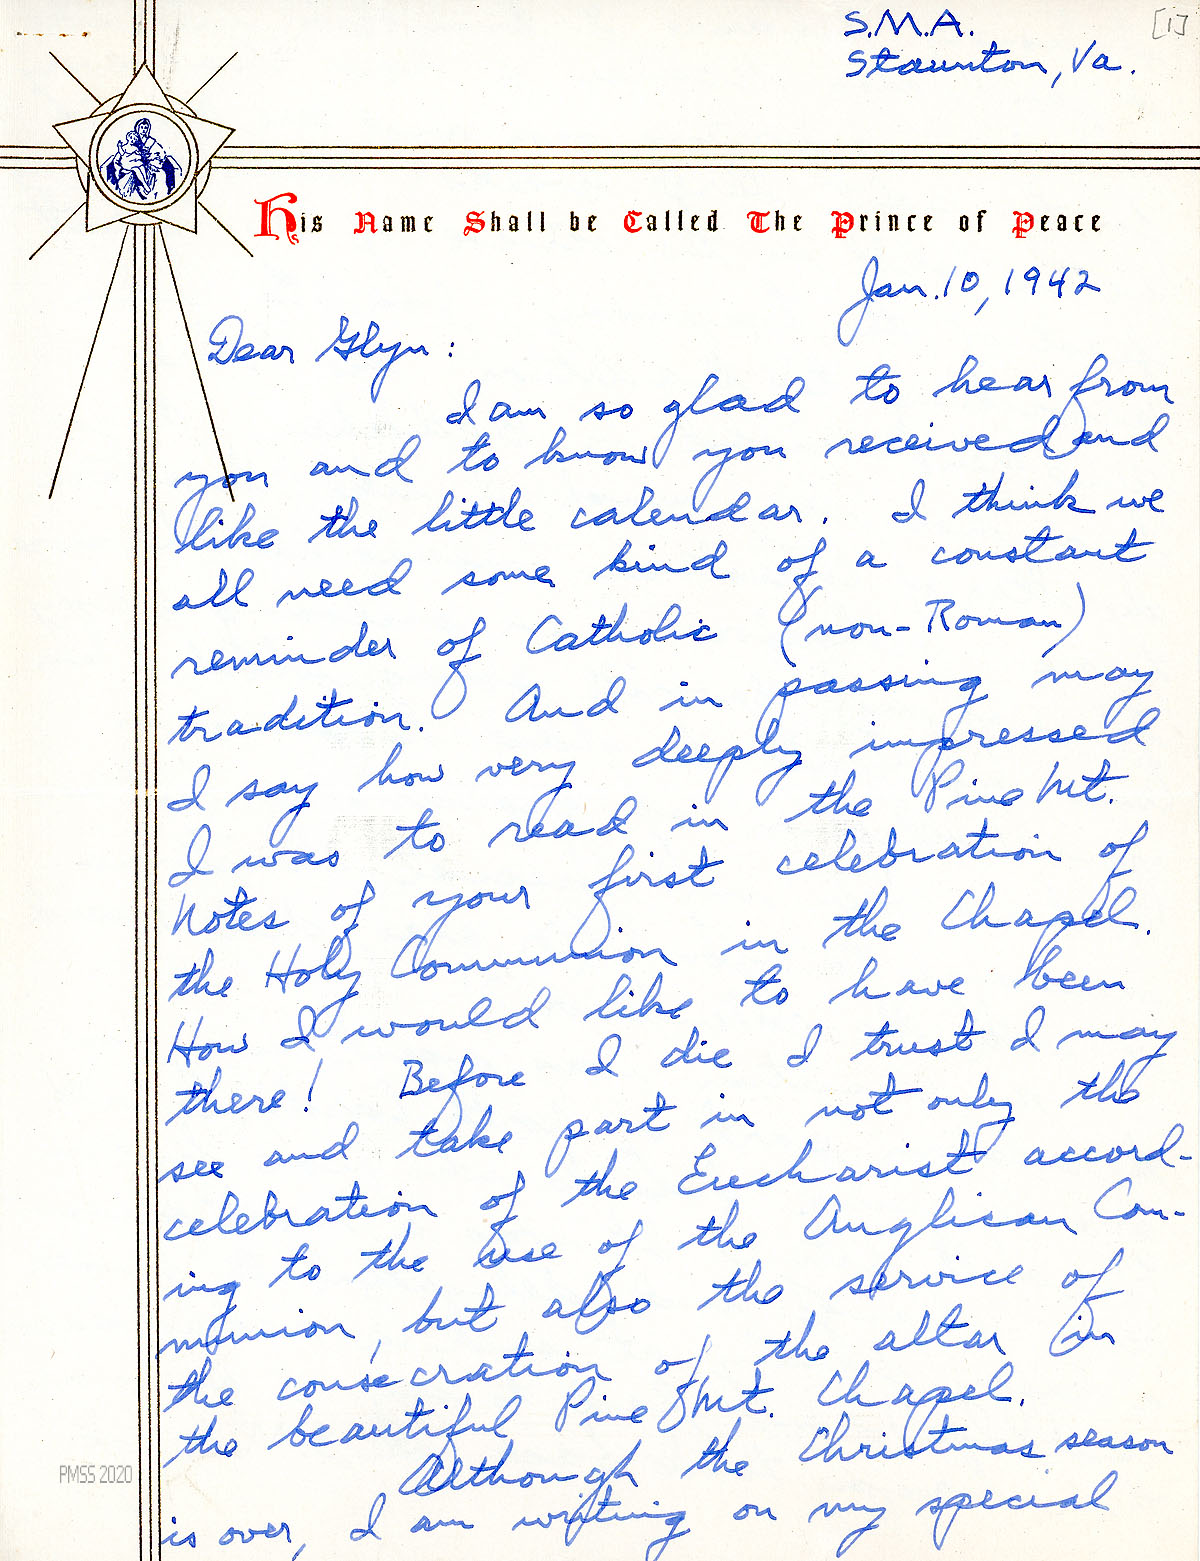 [1]
S.M.A.
Staunton, Va.
His Name Shall be Called The Prince of Peace
Jan. 10, 1942
Dear Glyn:
I am so glad to hear from
you and to know you received and
like the little calendar. I think we
all need some kind of a constant
reminder of Catholic (non-Roman)
tradition. And in passing may
I say how very deeply impressed
I was to read in the Pine Mt.
Notes of your first celebration of
the Holy Communion in the Chapel.
How I would like to have been
there! Before I die I trust I may
see and take part in not only the
celebration of the Eucharist accord-
ing to the use of the Anglican Com-
munion, but also the service of
the consecration of the altar in
the beautiful Pine Mt. Chapel.
Although the Christmas season
is over, I am writing on my special
PMSS 2020